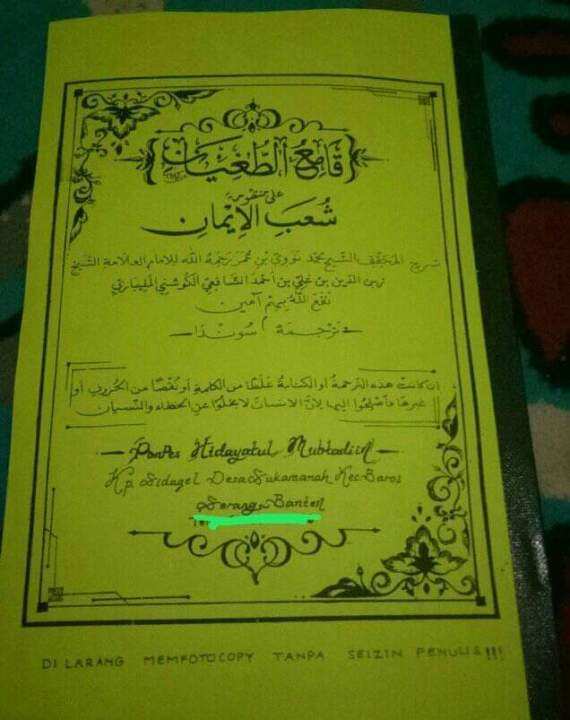 قَامِعُ الطُّغْيَانِ
على منظومة
شُعَبِ الْإِيْمَانِ
شرح المحقق الشيخ محمد نووي بن عمر رحمه الله للامام العلامة الشيخ
زين الدين بن علي بن أحمد الشافعي الكوشني المليباري
نفع الله بهم آمين
ترجمة سوندا
ان كانت هذه الترجمة او الكتابة غلطا من الكلمة أو نقصا من الحروف أو
غيرها فأصلحوا اليها لان الانسان لا يخلو عن الخطاء والنسيان
PonPes Hidayatul Mubtadiin
Kp. Sidagel Desa Sukamanah Kec. Baros
Serang-Banten
DI LARANG MEMFOTOCOPY TANPA SEIZIN PENULIS !!!